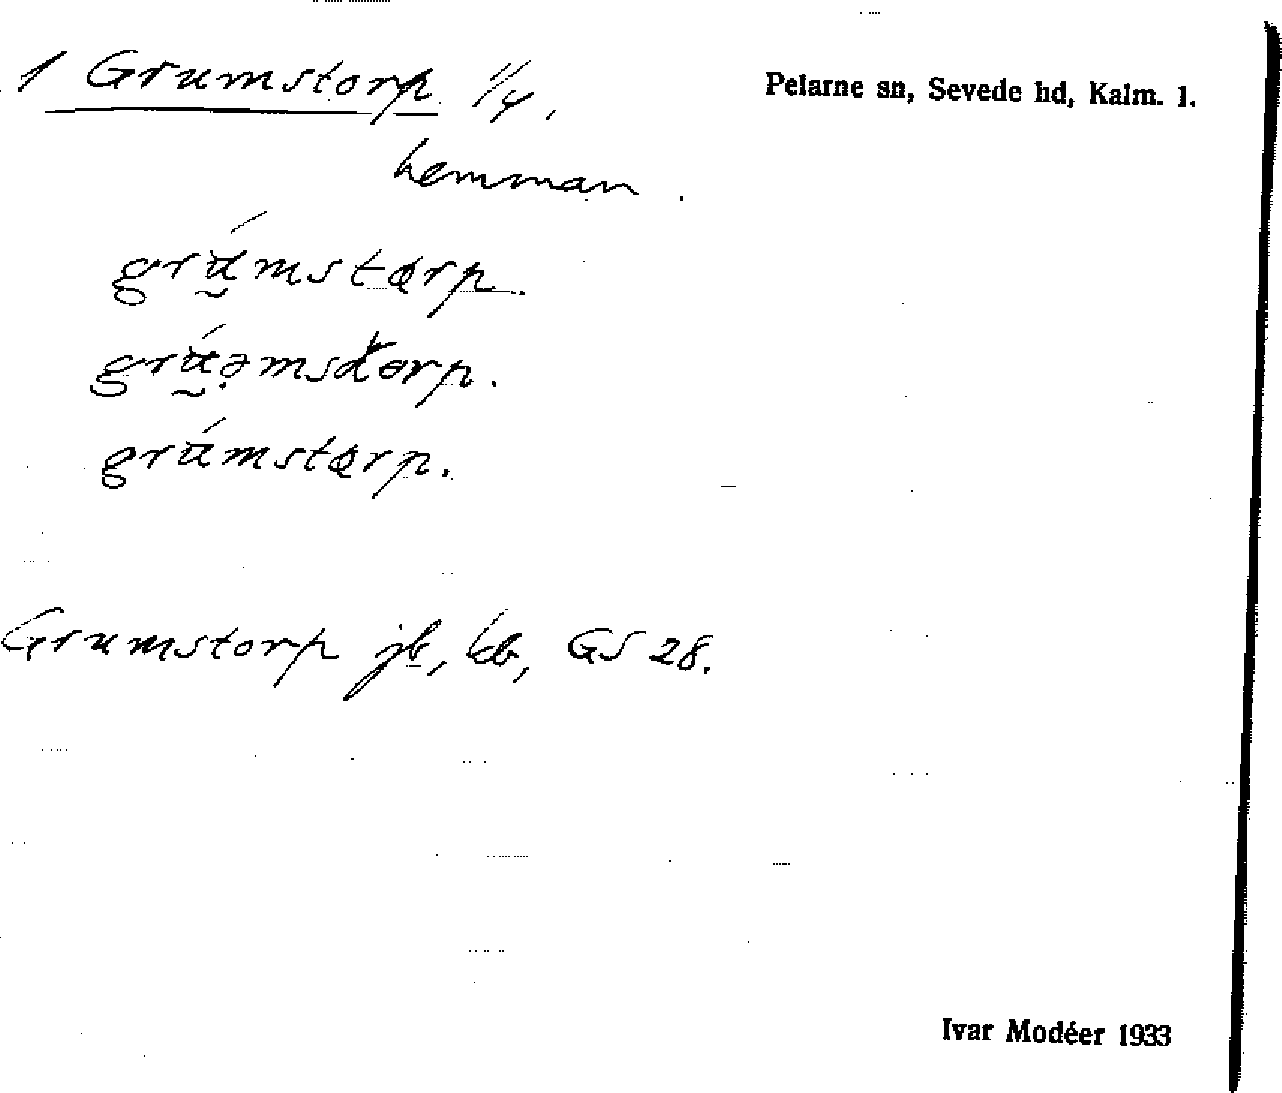 1 Grumstorp 1/4.
Pelarne sn, Sevede hd, Kalm. l.
hemman.
grúmstorp.
grúəmstorp.
grúmstorp.
Grumstorp jb, kb, GS 28.
Ivar Modéer 1933